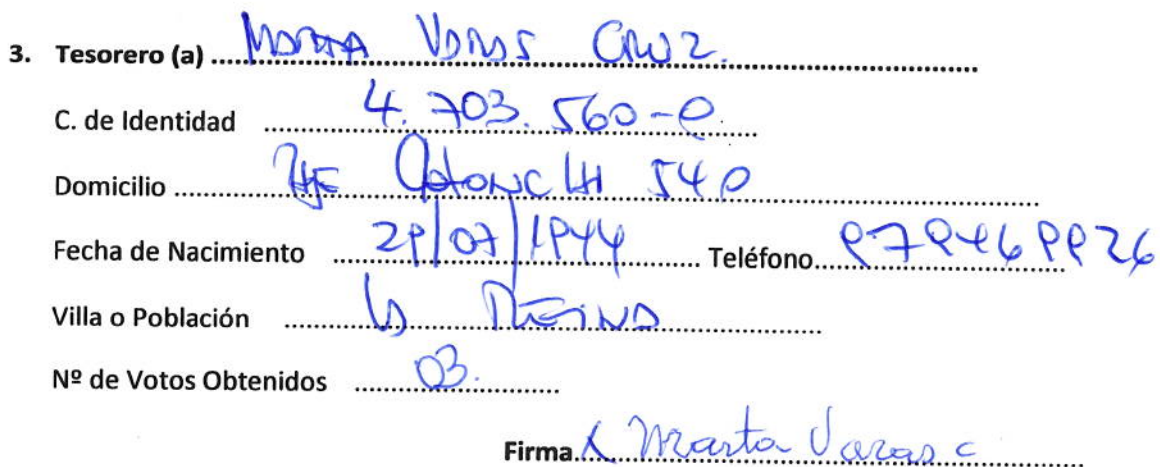 3. Tesorero (a) MARTA VARAS CRUZ.
C. de Identidad 4.703.560-9.
Domicilio PJE 540
Fecha de Nacimiento 29/07/1944 Teléfono 979469926
Villa o Población LA REINA
Nº de Votos Obtenidos 03.
Firma X Marta Varas C